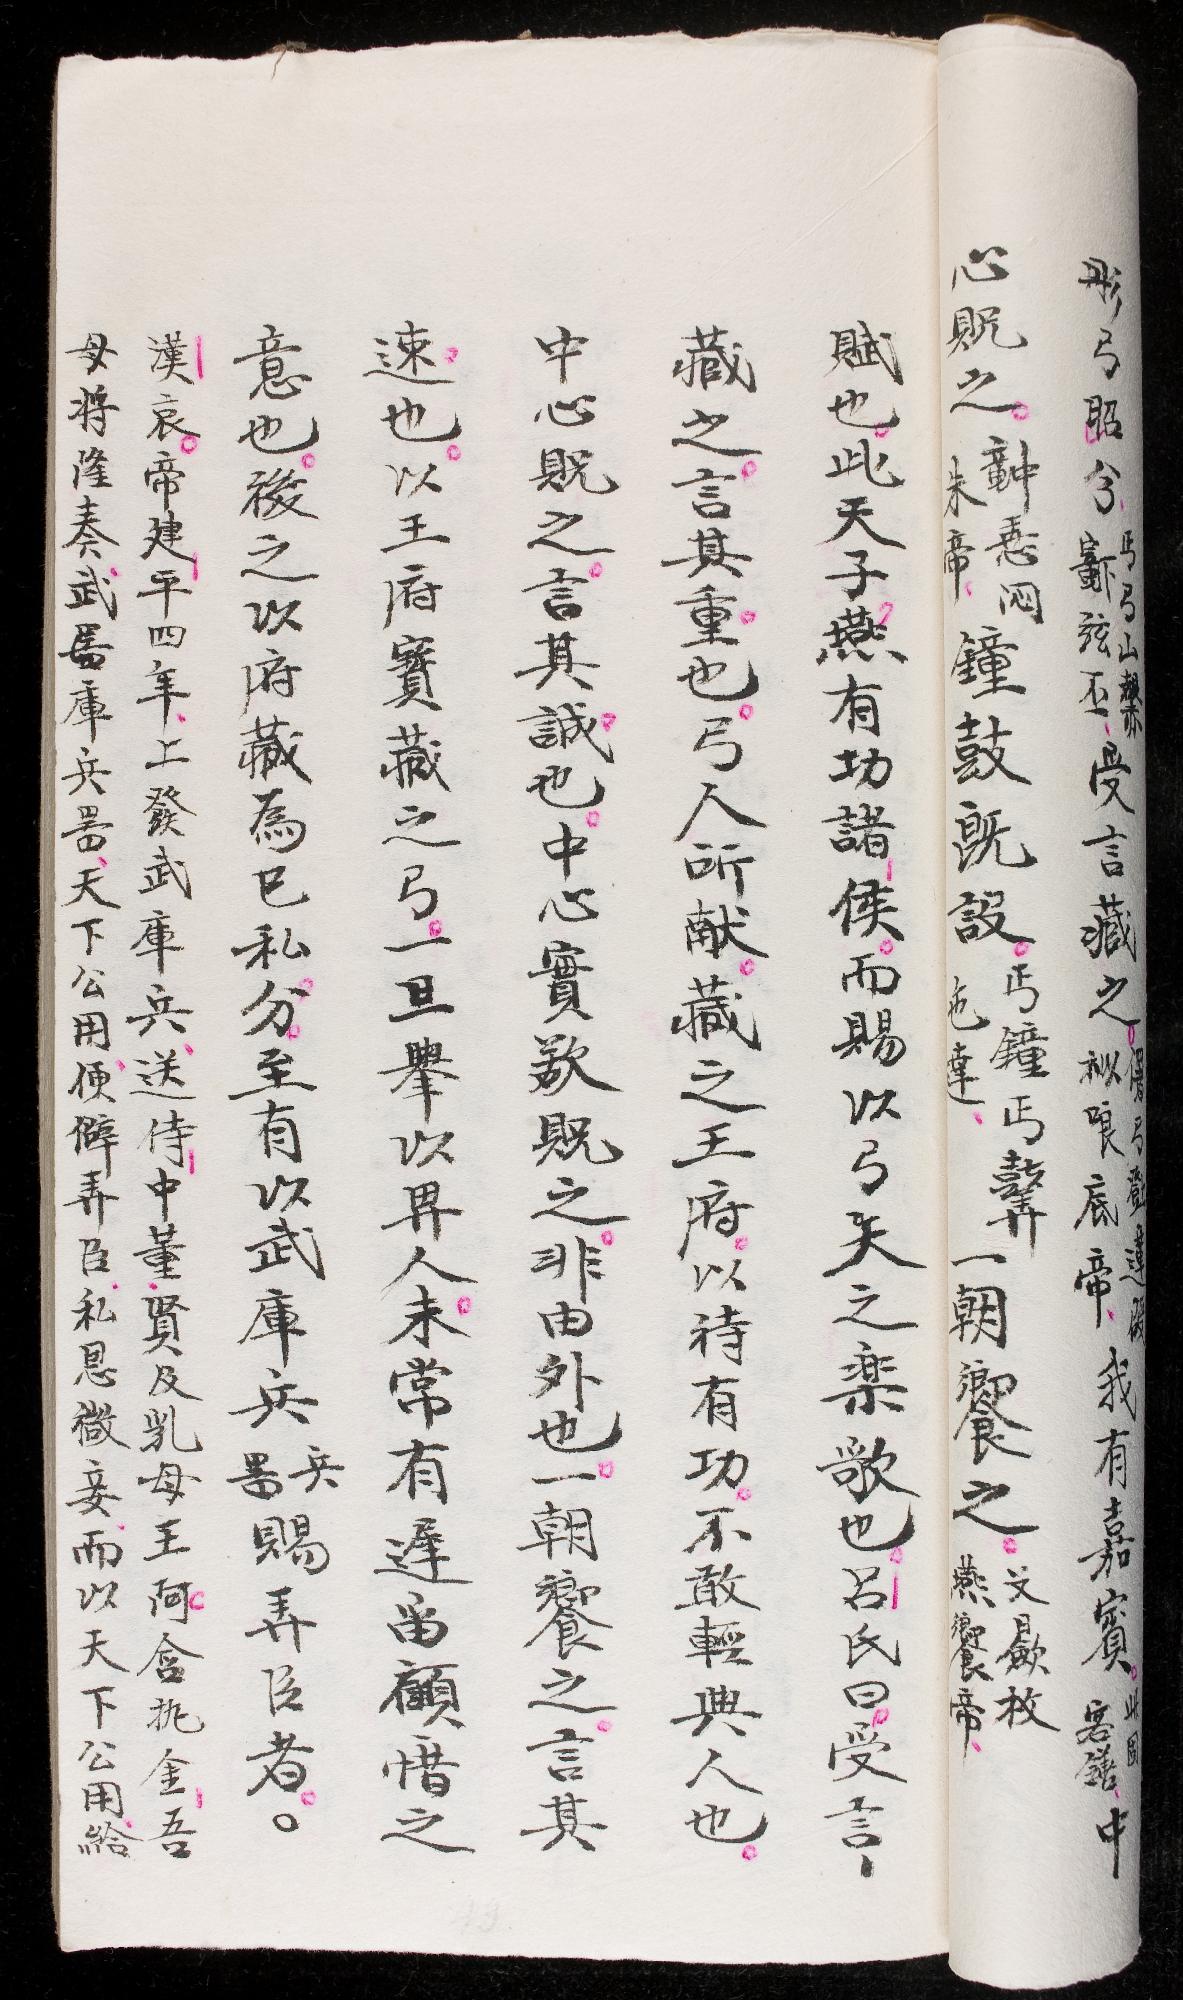 彤弓弨兮丐弓山弦丕受言藏之我有嘉賓中
心貺之朱帝鐘鼓旣設丐鐘丐迻達一朝饗之燕饗帝
賦也此天子燕有功諸侯而賜以弓矢之楽歌也吕氏曰受言
藏之言其重也弓人所献藏之王府以待有功不敢輕與人也
中心貺之言其誠也中心實欲貺之非由外也一朝饗之言其
速也以王府寶藏之弓一旦舉以畀人未常有遲留顧惜之
意也後之以府藏為已私分至有以武庫兵兵噐賜弄臣者
漢哀帝建平四年上發武庫兵送侍中董賢及乳母王阿舍执金吾
母将隆奏武庫兵噐天下公用便僻弄臣私恩微妾而以天下公用給